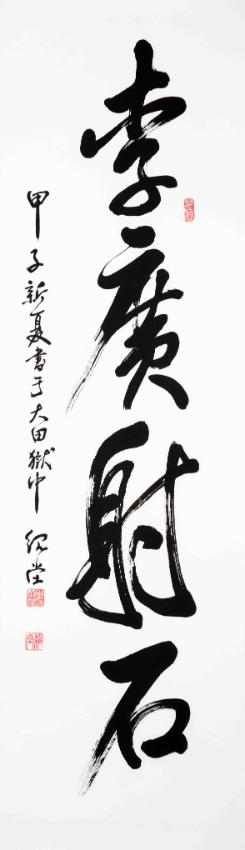 李廣射石
甲子新夏書于大田獄中 紹堂